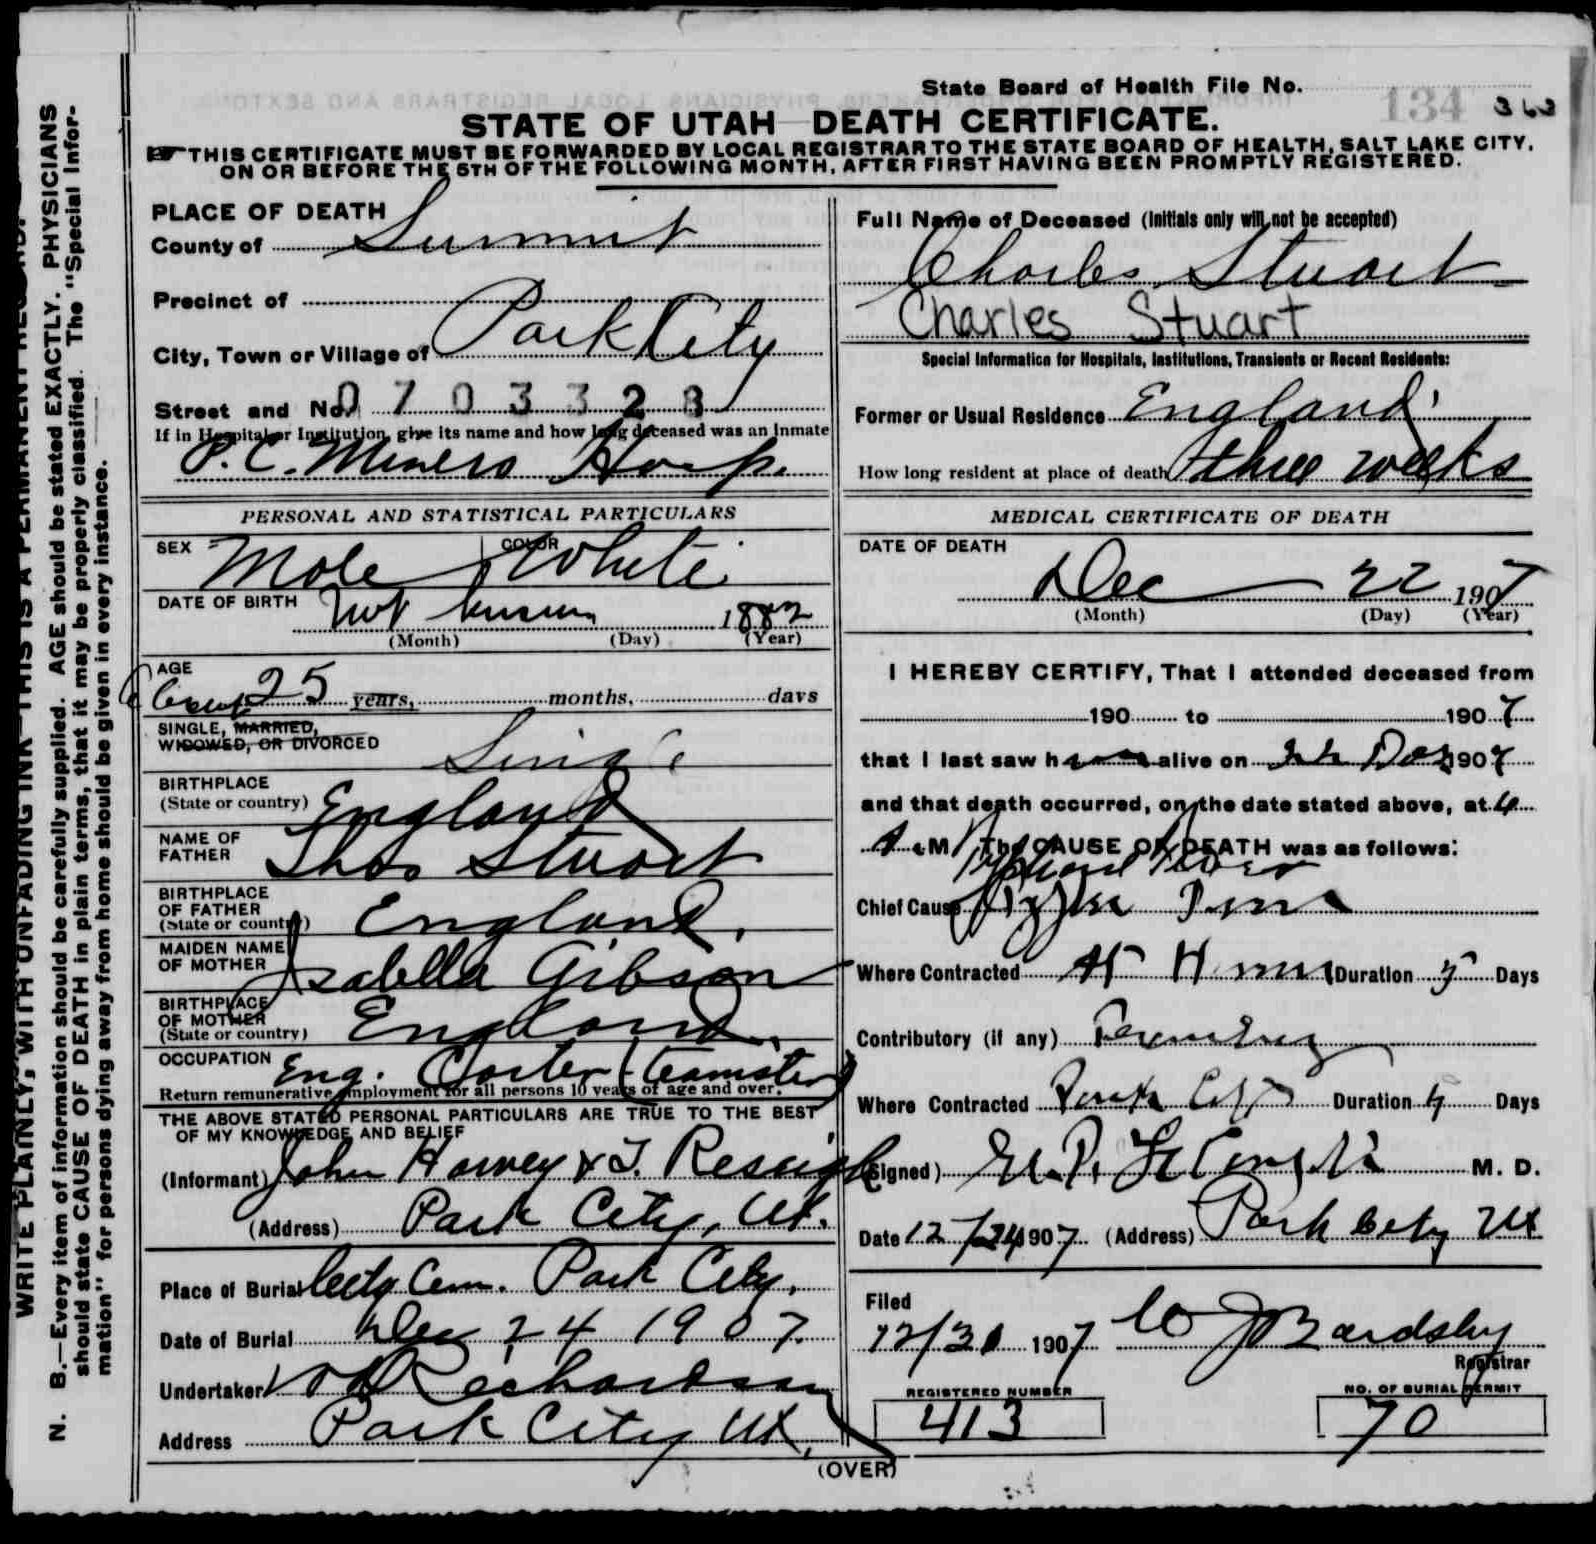 State Board of Health File No. 134 363
STATE OF UTAH DEATH CERTIFICATE.
THIS CERTIFICATE MUST BE FORWARDED BY LOCAL REGISTRAR TO THE STATE BOARD OF HEALTH, SALT LAKE CITY,
ON OR BEFORE THE 5TH OF THE FOLLOWING MONTH, AFTER FIRST HAVING BEEN PROMPTLY REGISTERED.
PLACE OF DEATH
County of Summit
Precinct of
City, Town or Village of Park City
Street and No. 0703328
If in Hospital or Institution, give its name and how long deceased was an Inmate
P. C. Miners Hosp.
Full Name of Deceased (Initials only will not be accepted)
Charles Stuart
Charles Stuart
Special Information for Hospitals, Institutions, Transients or Recent Residents:
Former or Usual Residence England
How long resident at place of death three weeks
PERSONAL AND STATISTICAL PARTICULARS
SEX Male COLOR White
DATE OF BIRTH Not known 1882
(Month) (Day) (Year)
AGE About 25 years, months, days
SINGLE, MARRIED,
WIDOWED, OR DIVORCED Single
BIRTHPLACE
(State or country) England
NAME OF
FATHER Thos Stuart
BIRTHPLACE
OF FATHER
(State or country) England.
MAIDEN NAME
OF MOTHER Isabella Gibson
BIRTHPLACE
OF MOTHER
(State or country) England.
OCCUPATION Eng. Carter (teamster)
Return remunerative employment for all persons 10 years of age and over.
THE ABOVE STATED PERSONAL PARTICULARS ARE TRUE TO THE BEST
OF MY KNOWLEDGE AND BELIEF
(Informant) John Harvey & T.
(Address) Park City, Ut.
Place of Burial City Cem. Park City.
Date of Burial Dec 24 1907.
Undertaker Richardson
Address Park City Ut.
MEDICAL CERTIFICATE OF DEATH
DATE OF DEATH
Dec 22 1907
(Month) (Day) (Year)
I HEREBY CERTIFY, That I attended deceased from
190 to 1907
that I last saw h alive on 22 Dec 1907
and that death occurred, on the date stated above, at 4
A.M. The CAUSE OF DEATH was as follows:
Typhoid Fever
Chief Cause
Where Contracted Duration Days
Contributory (if any)
Where Contracted Park City Duration Days
(Signed) M. D.
Date 12/24 1907 (Address) Park City Ut
Filed
12/31 1907 Bardsley
Registrar
REGISTERED NUMBER
413
NO. OF BURIAL PERMIT
70
(OVER)
WRITE PLAINLY, WITH UNFADING INK—THIS IS A PERMANENT RECORD.
N. B.—Every item of information should be carefully supplied. AGE should be stated EXACTLY. PHYSICIANS
should state CAUSE OF DEATH in plain terms, that it may be properly classified. The "Special Infor-
mation" for persons dying away from home should be given in every instance.